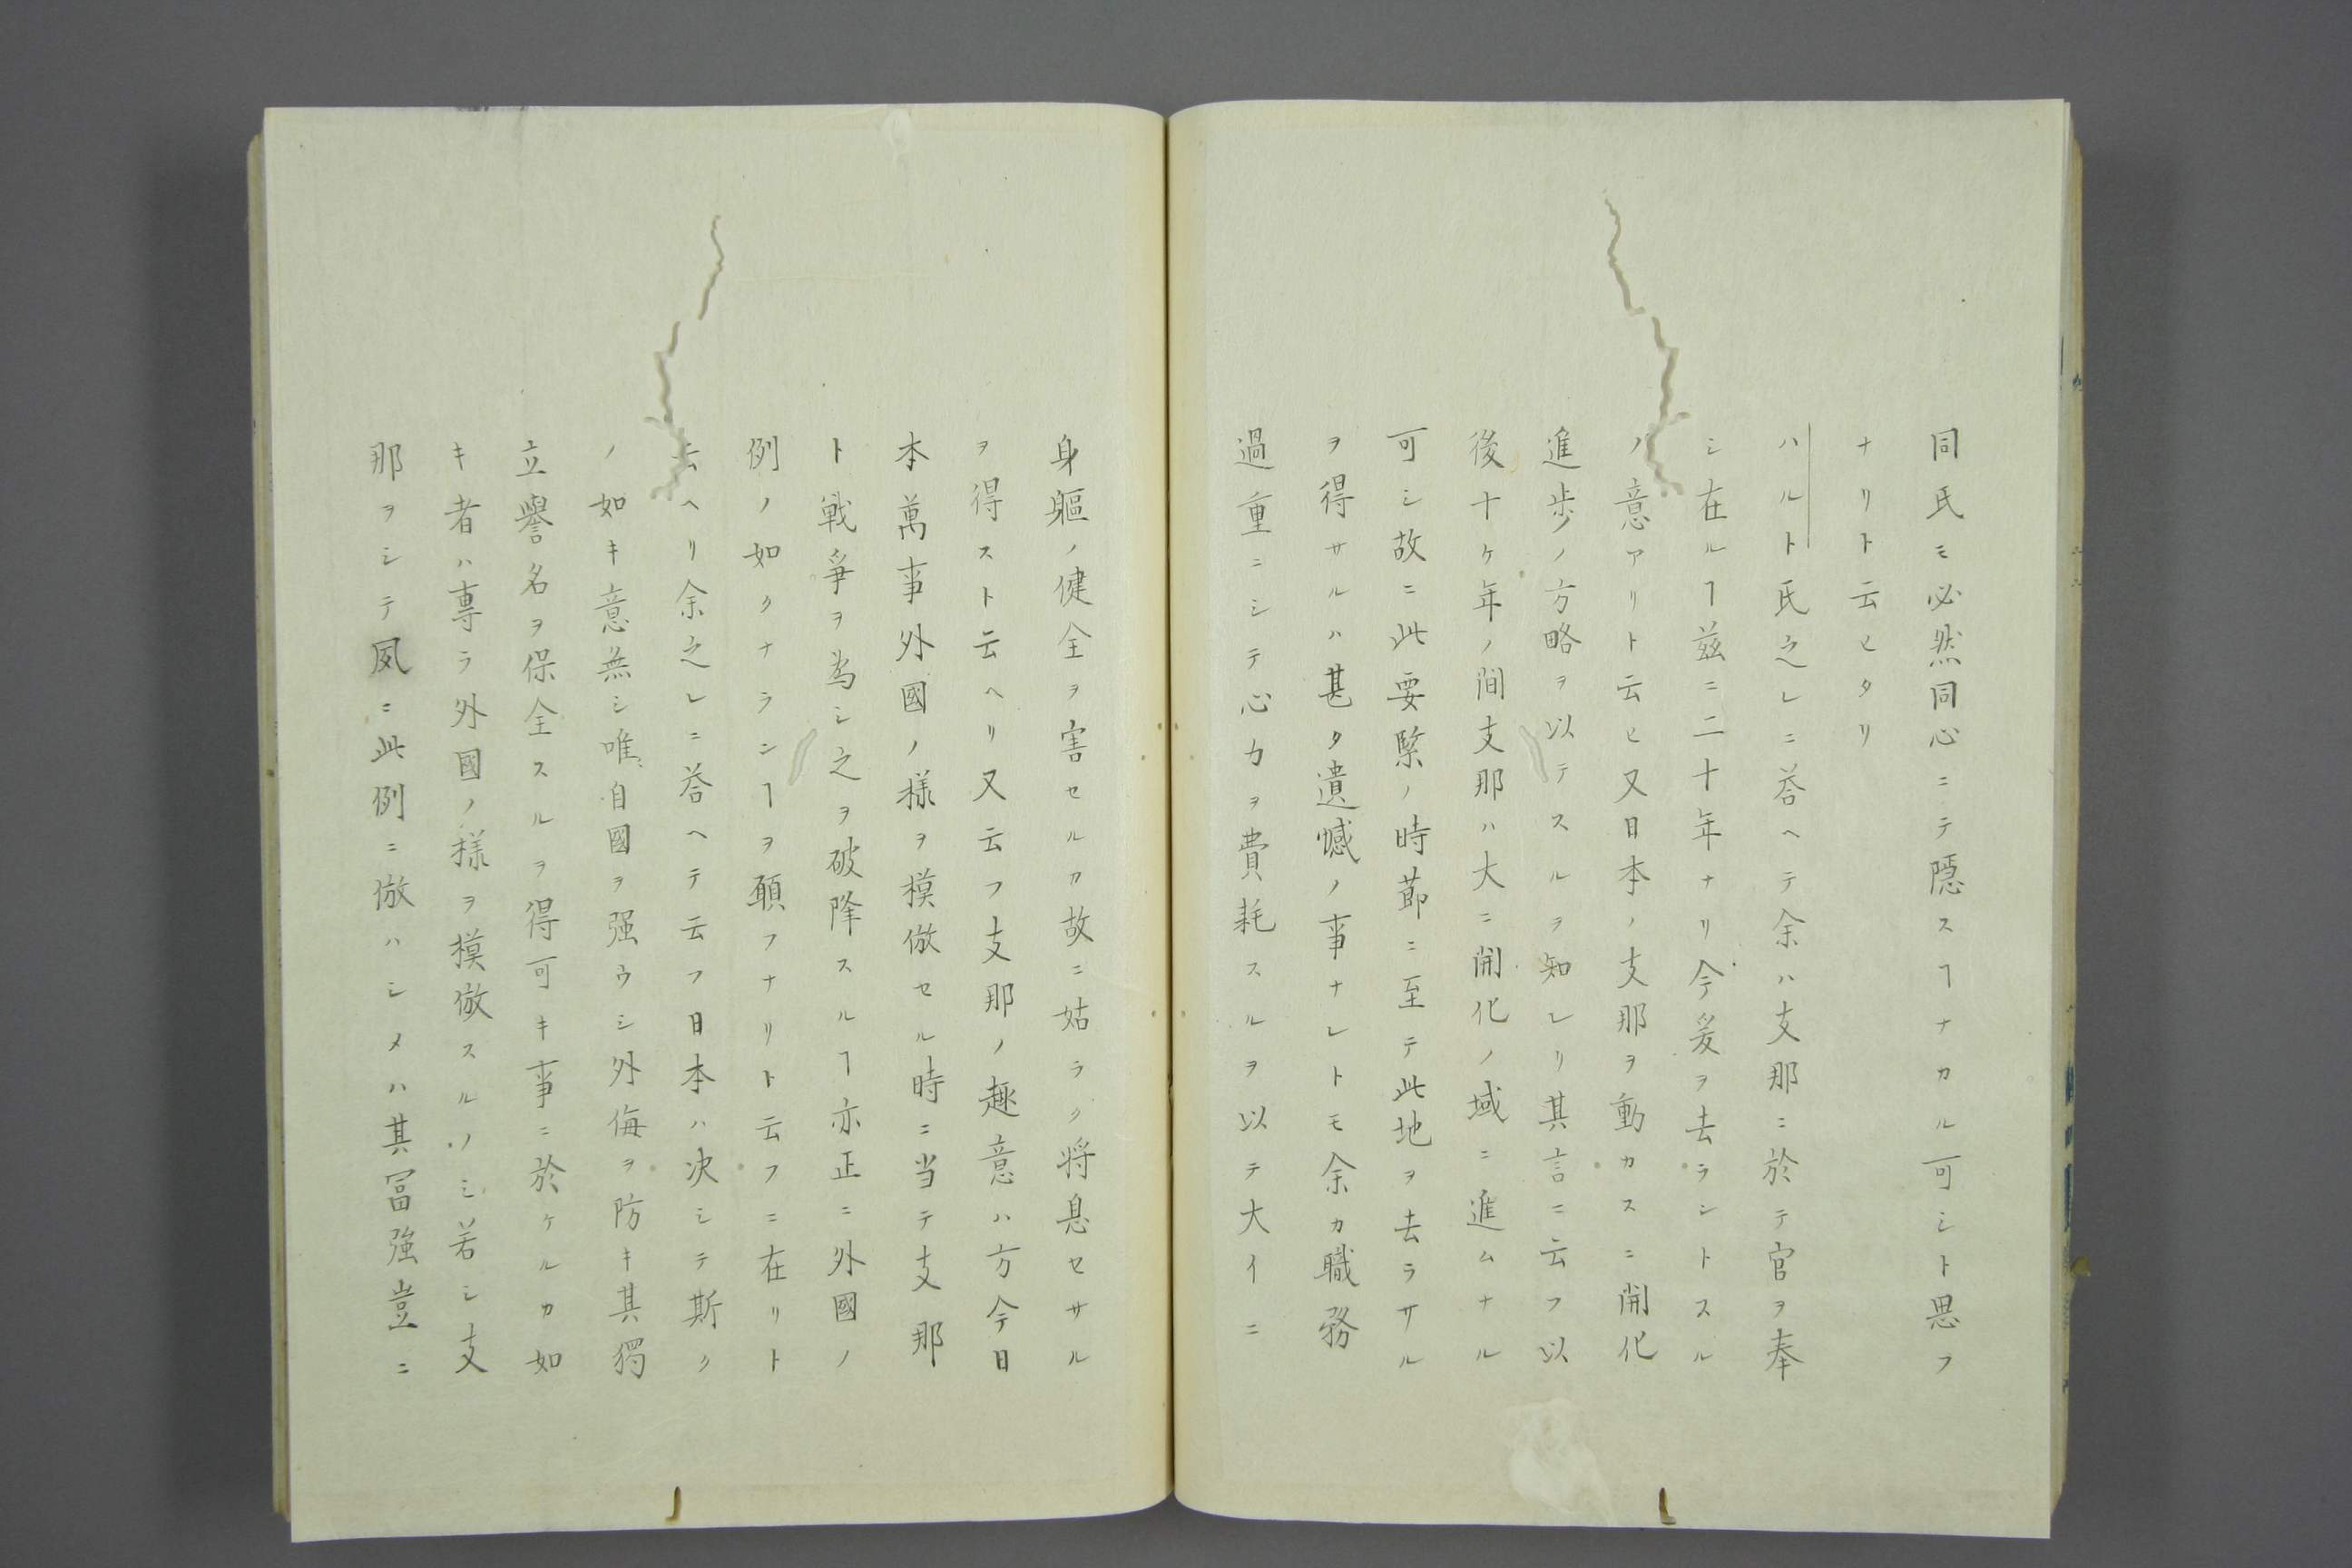 同氏モ必然同心ニテ隠スヿナカル可シト思フ
ナリト云ヒタリ
ハルト氏之レニ答ヘテ余ハ支那ニ於テ官ヲ奉
シ在ルヿ茲ニ二十年ナリ今爰ヲ去ラントスル
ノ意アリト云ヒ又日本ノ支那ヲ動カスニ開化
進歩ノ方略ヲ以テスルヲ知レリ其言ニ云フ以
後十ケ年ノ間支那ハ大ニ開化ノ域ニ進ムナル
可シ故ニ此要緊ノ時節ニ至テ此地ヲ去ラサル
ヲ得サルハ甚タ遺憾ノ事ナレトモ余カ職務
過重ニシテ心力ヲ費耗スルヲ以テ大イニ
身軀ノ健全ヲ害セルカ故ニ姑ラク将息セサル
ヲ得スト云ヘリ又云フ支那ノ趣意ハ方今日
本萬事外國ノ様ヲ模倣セル時ニ当テ支那
ト戦爭ヲ為シ之ヲ破降スルヿ亦正ニ外國ノ
例ノ如クナランヿヲ願フナリト云フニ在リト
云ヘリ余之レニ答ヘテ云フ日本ハ决シテ斯ク
ノ如キ意無シ唯自國ヲ强ウシ外侮ヲ防キ其獨
立譽名ヲ保全スルヲ得可キ事ニ於ケルカ如
キ者ハ專ラ外國ノ様ヲ模倣スルノミ若シ支
那ヲシテ夙ニ此例ニ倣ハシメハ其冨強豈ニ